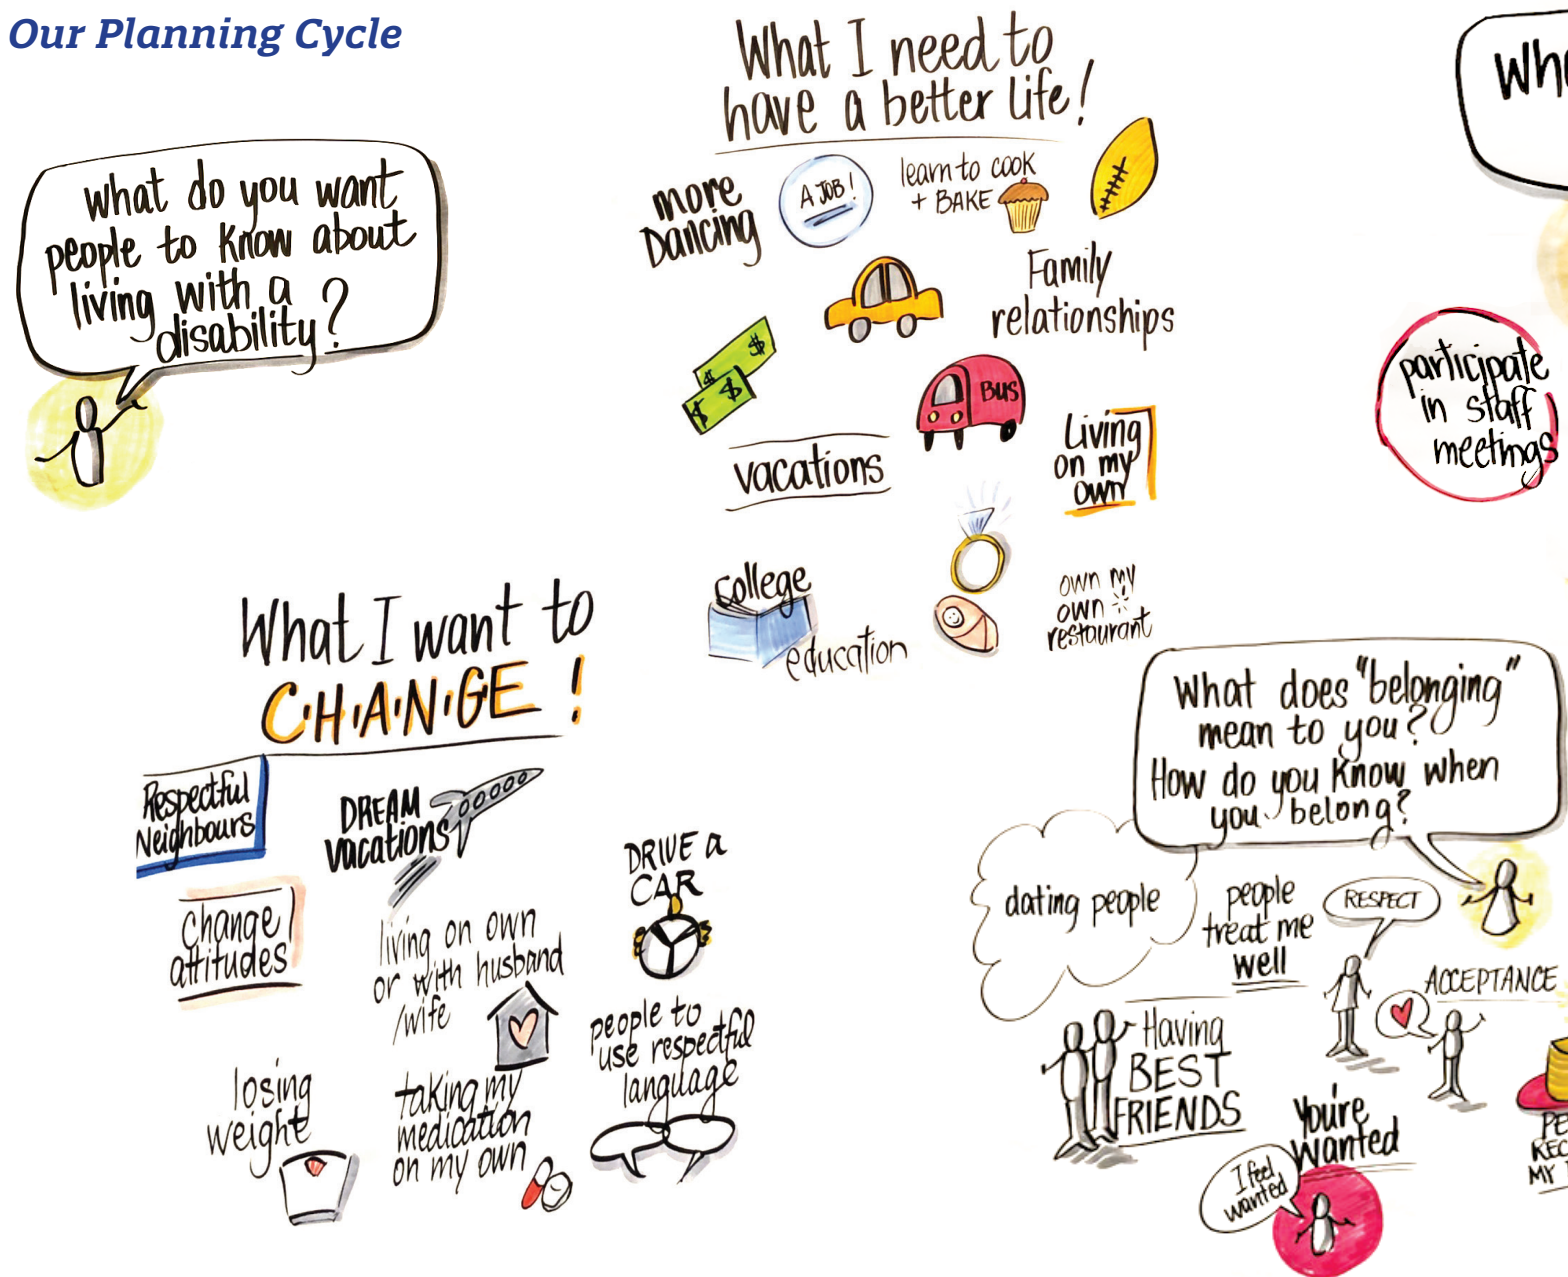 Our Planning Cycle
What do you want
people to know about
living with a
disability?
What I need to
have a better life!
more
Dancing
A JOB!
learn to cook
+ BAKE
Family
relationships
$
$
$
$
BUS
vacations
Living
on my
own
college
education
own my
own
restaurant
participate
in staff
meetings
What I want to
CHANGE!
Respectful
Neighbours
DREAM
vacations
DRIVE a
CAR
change
attitudes
living on own
or with husband
/wife
people to
use respectful
language
losing
weight
taking my
medication
on my own
What does "belonging"
mean to you?
How do you know when
you belong?
dating people
people
treat me
well
RESPECT
ACCEPTANCE
Having
BEST
FRIENDS
You're
wanted
I feel
wanted
MY